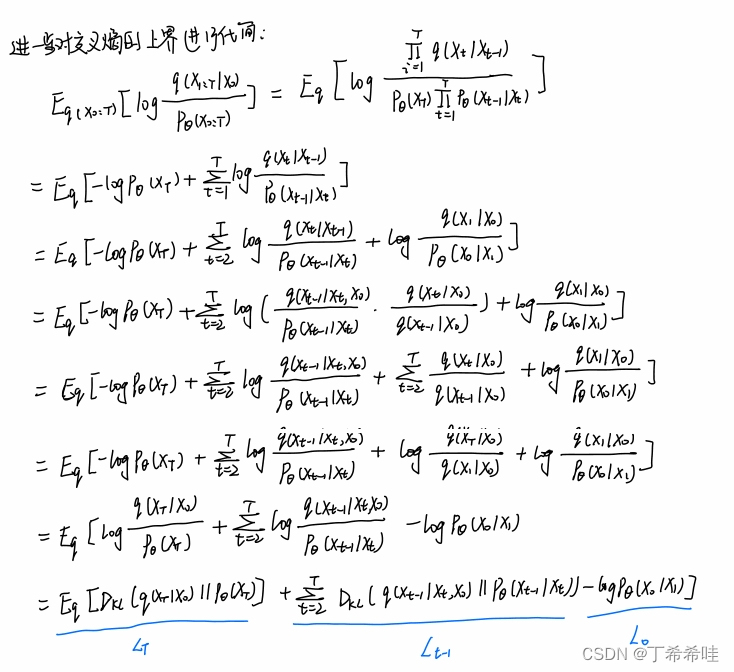 进一步对交叉熵的上界进行化简:
E_{q(x_{0:T})} [ log q(x_{1:T}|x_0) / P_θ(x_{0:T}) ] = E_q [ log ∏_{i=1}^{T} q(x_t|x_{t-1}) / P_θ(x_T) ∏_{t=1}^{T} P_θ(x_{t-1}|x_t) ]
= E_q [ -log P_θ(x_T) + ∑_{t=1}^{T} log q(x_t|x_{t-1}) / P_θ(x_{t-1}|x_t) ]
= E_q [ -log P_θ(x_T) + ∑_{t=2}^{T} log q(x_t|x_{t-1}) / P_θ(x_{t-1}|x_t) + log q(x_1|x_0) / P_θ(x_0|x_1) ]
= E_q [ -log P_θ(x_T) + ∑_{t=2}^{T} log ( q(x_{t-1}|x_t,x_0) / P_θ(x_{t-1}|x_t) · q(x_t|x_0) / q(x_{t-1}|x_0) ) + log q(x_1|x_0) / P_θ(x_0|x_1) ]
= E_q [ -log P_θ(x_T) + ∑_{t=2}^{T} log q(x_{t-1}|x_t,x_0) / P_θ(x_{t-1}|x_t) + ∑_{t=2}^{T} q(x_t|x_0) / q(x_{t-1}|x_0) + log q(x_1|x_0) / P_θ(x_0|x_1) ]
= E_q [ -log P_θ(x_T) + ∑_{t=2}^{T} log q(x_{t-1}|x_t,x_0) / P_θ(x_{t-1}|x_t) + log q(x_T|x_0) / q(x_1|x_0) + log q(x_1|x_0) / P_θ(x_0|x_1) ]
= E_q [ log q(x_T|x_0) / P_θ(x_T) + ∑_{t=2}^{T} log q(x_{t-1}|x_t,x_0) / P_θ(x_{t-1}|x_t) - log P_θ(x_0|x_1)
= E_q [ D_{KL}(q(x_T|x_0) || P_θ(x_T)] + ∑_{t=2}^{T} D_{KL}(q(x_{t-1}|x_t,x_0) || P_θ(x_{t-1}|x_t)) - log P_θ(x_0|x_1) ]
L_T L_{t-1} L_0
CSDN @丁希希哇